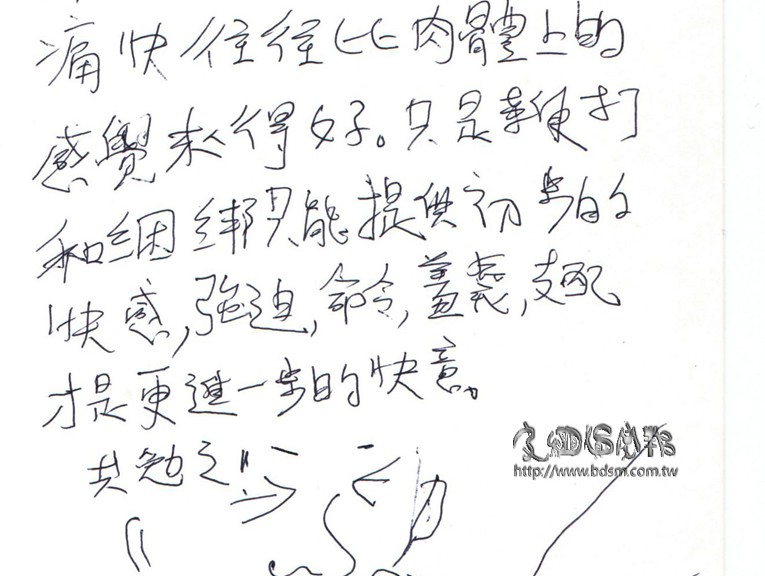 痛快往往比肉體上的
感覺來得好。只是鞭打
和綑綁只能提供初步的
快感,強迫,命令,羞辱,支配
才是更進一步的快意。
共勉之!!
BDSM
http://www.bdsm.com.tw